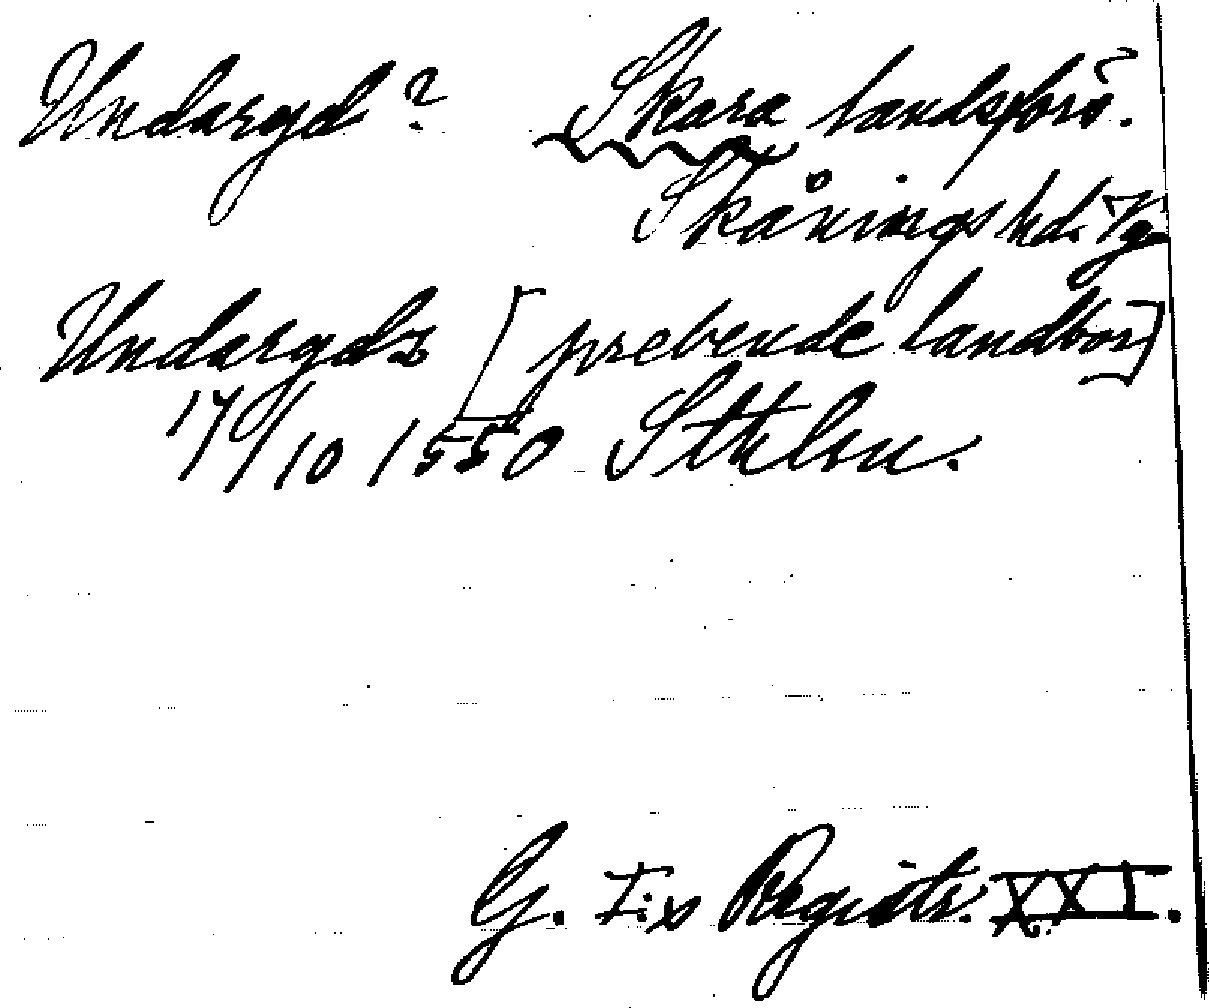 Undargd? Skara landsförs.
Skånings hd. Vg.
Undargdz [prebende landbor]
17/10 1550 Sthlm.
G. I:s Registr. XXI.